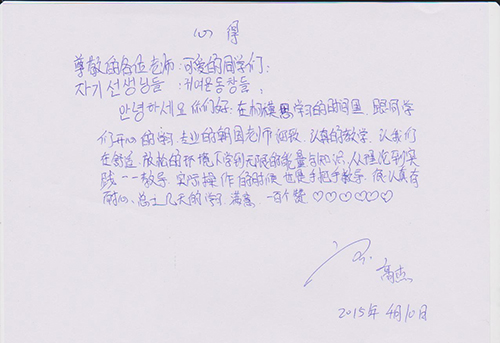 心 得
尊敬的各位老师:可爱的同学们:
자기선생님들:귀여운동창들;
안녕하세요 你们好:在 学习的时间里 跟同学
们开心的学习,专业的韩国老师 认真的教学,让我们
在舒适 放松的环境下学到无限的能量与知识,从理论到实
践一一教导,实际操作的时候也是手把手教导,很认真有
耐心,总之几天的学习,满意,一百个赞♡♡♡♡♡♡
高杰
2015年4月10日